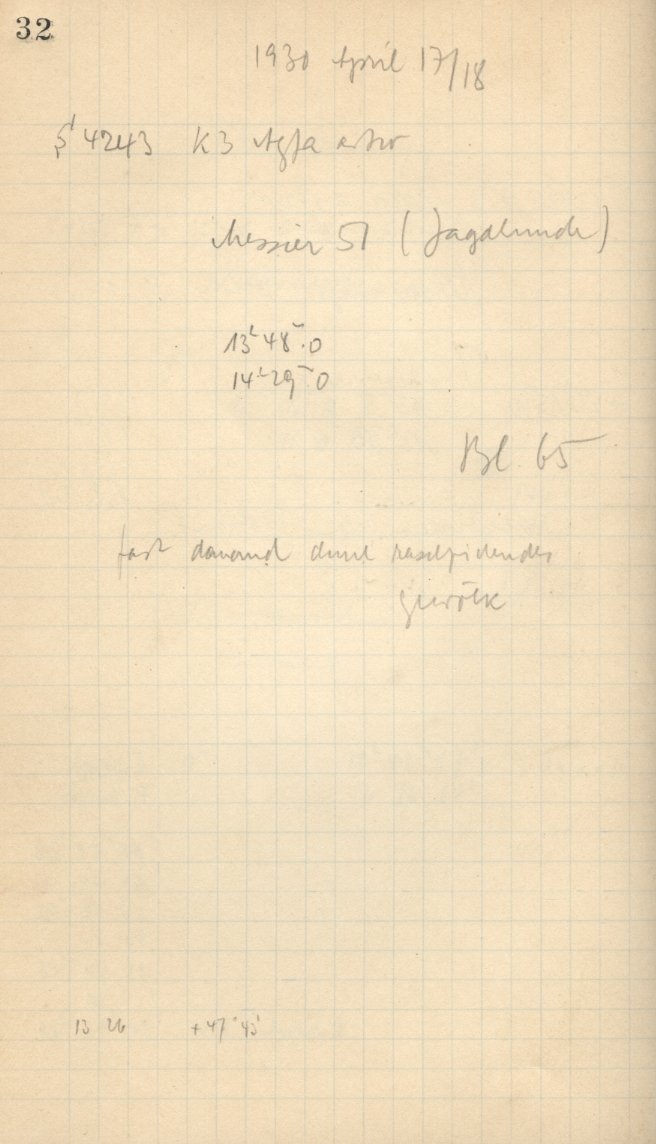 32
1930 April 17/18
4243 K3 Agfa astro
Messier 51 (Jagdhunde)
13ʰ48ᵐ.0
14ʰ29ᵐ0
Bl. 65
fast dauernd durch
Gewölk
13 26 +47°43'